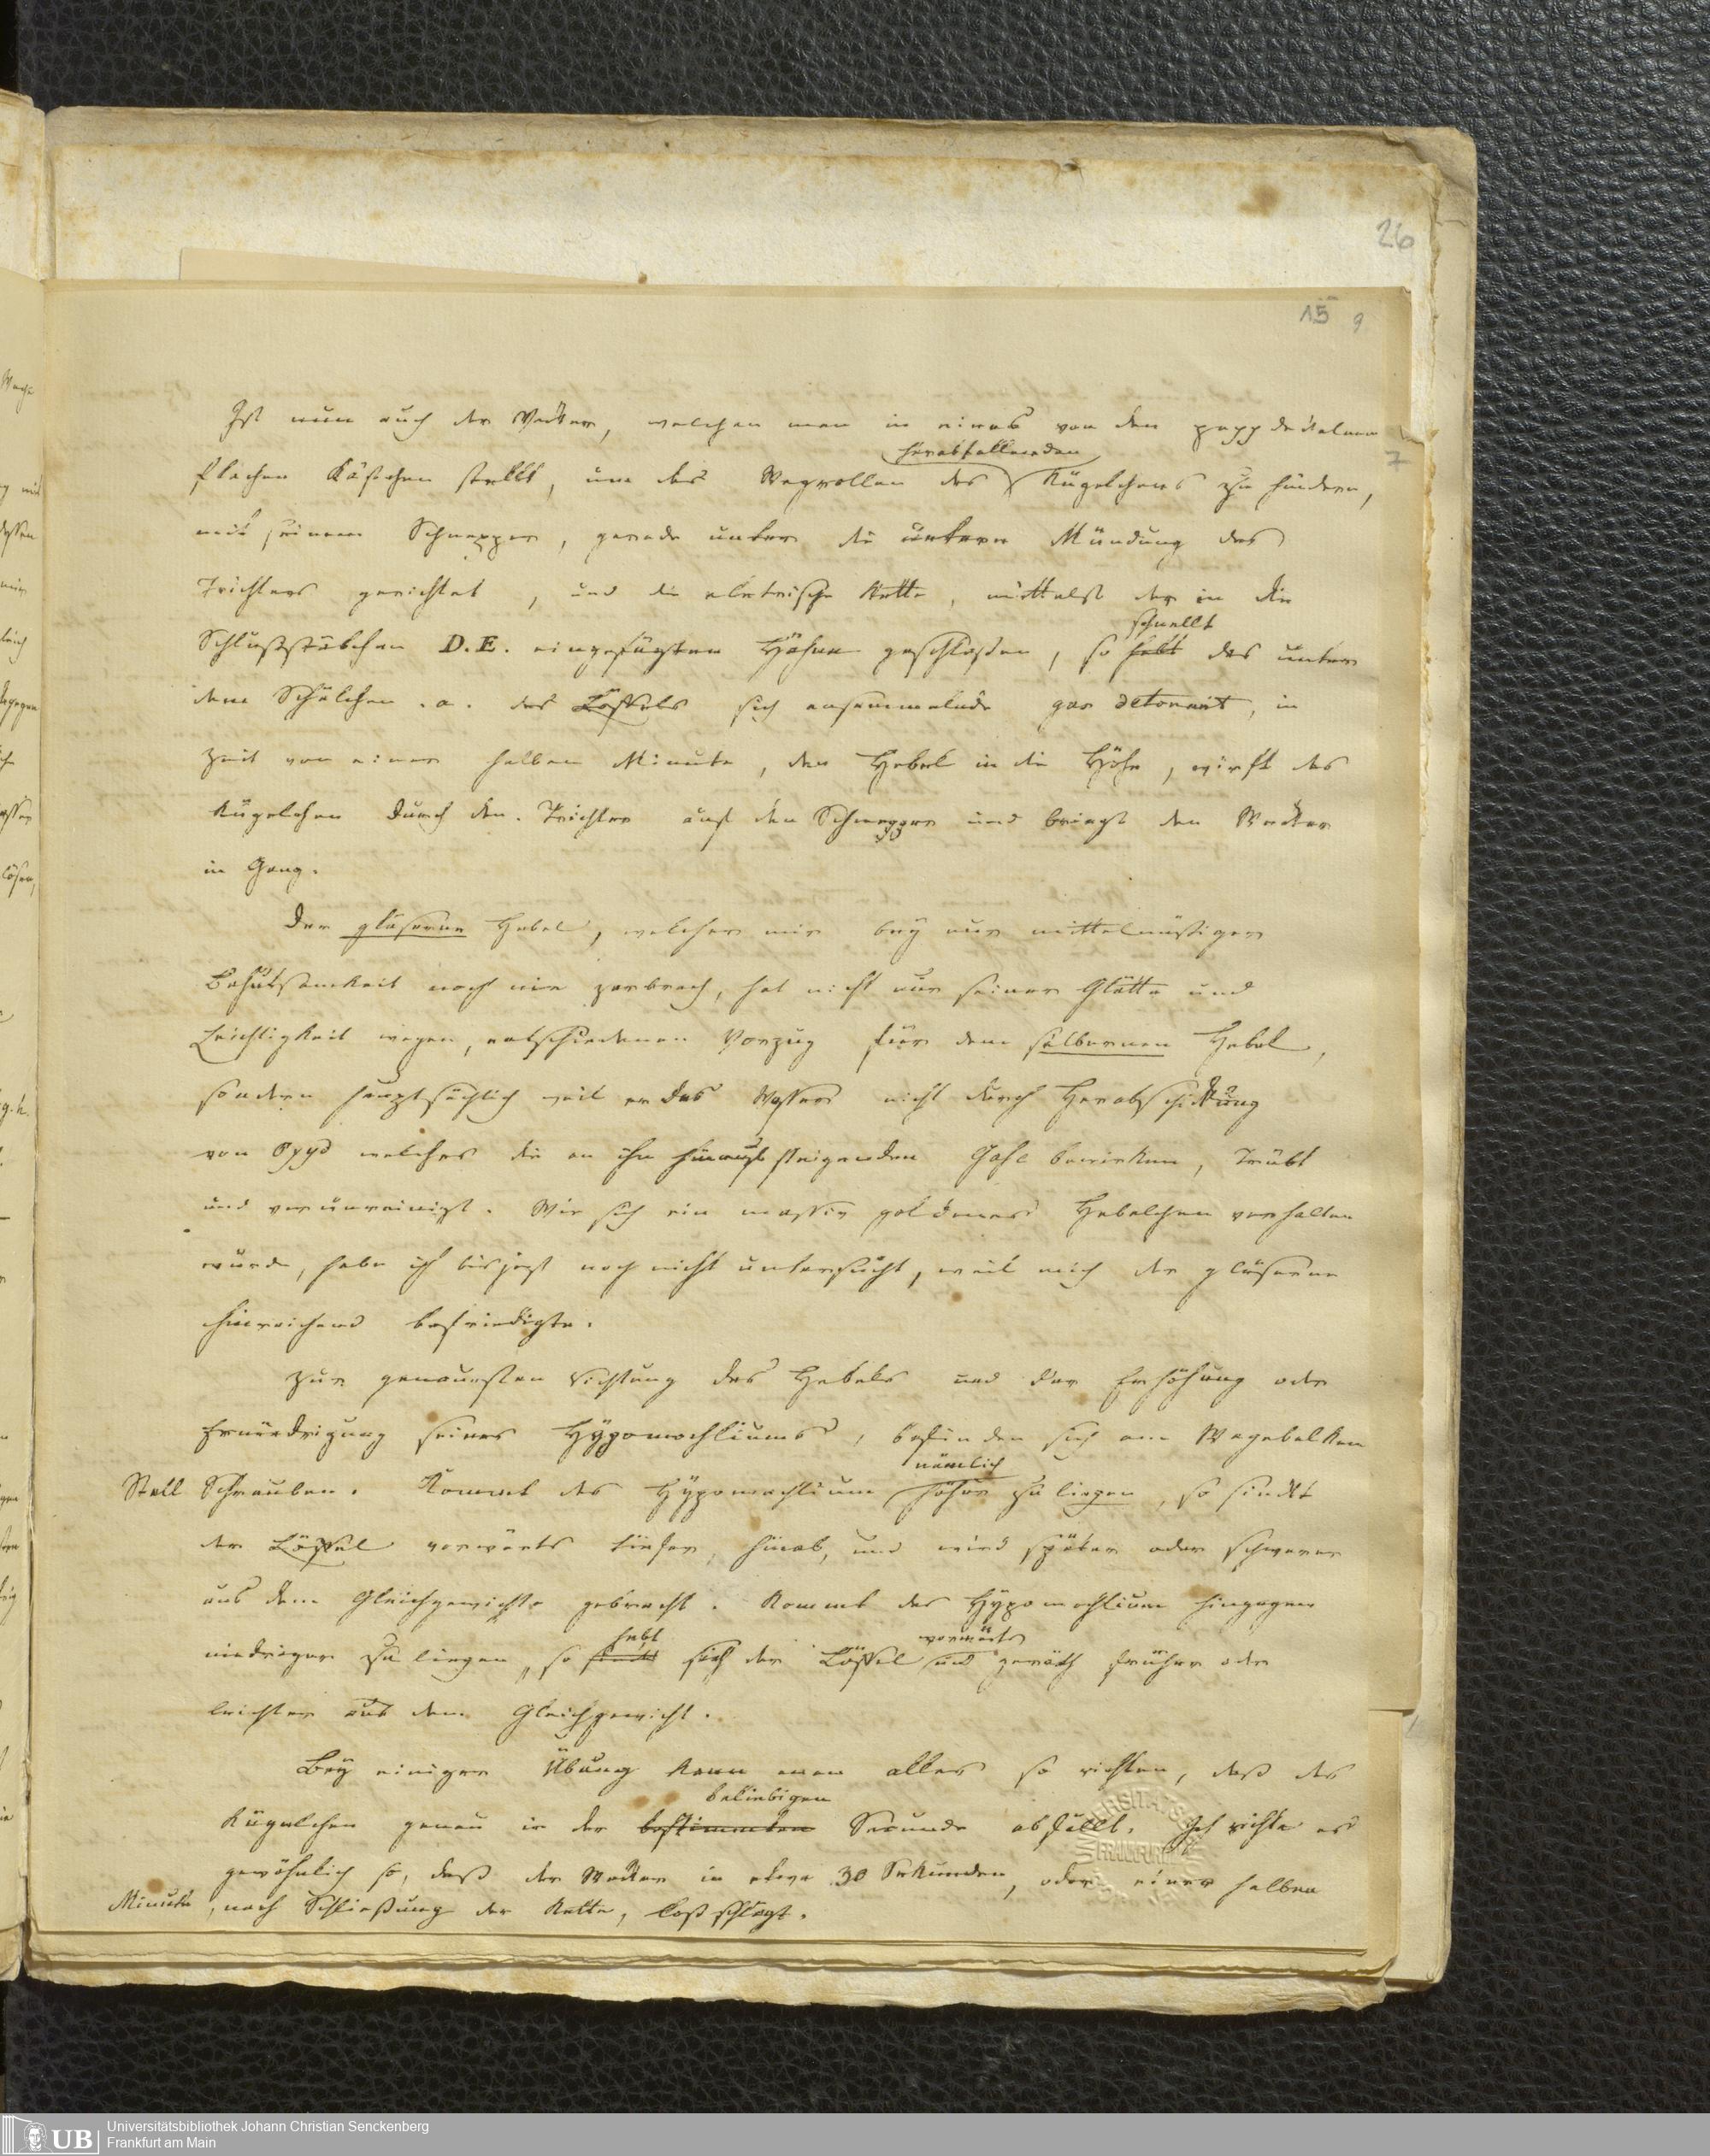 26
15 9
7
Ist nun auch der Wecker, welchen man in eines von den pappdekelnen
herabfallenden
flachen Käsichen stellt, um das Wegrollen des Kügelchens zu hindern,
mit seinem Schnepper, gerade unter die untere Mündung des
Trichters gerichtet, und die elektrische Kette, mittelst der in die
schnellt
Schlußstäbchen D. E. eingefügten Hähne geschlossen, so hebt das unter
dem Schälchen .a. des Löffels sich ansammelnde gas detonant, in
Zeit von einer halben Minute, den Hebel in die Höhe, wirft das
Kügelchen durch den Trichter auf den Schnepper und bringt den Wecker
in Gang.
Der gläserne Hebel, welcher mir bey nur mittelmäßiger
Behutsamkeit noch nie zerbrach, hat nicht nur seiner Glätte und
Leichtigkeit wegen, entschiedenen Vorzug für dem silbernen Hebel,
sondern hauptsächlich weil er das Wasser nicht durch Herabschickung
von Oxyd welches die an ihm hinauf steigenden Gase bewirken, trübt
und verunreinigt. Wie sich ein massiv goldenes Hebelchen verhalten
würde, habe ich bis jezt noch nicht untersucht, weil mich der gläserne
hinreichend befriedigte.
Zur genauesten Richtung des Hebels und der Erhöhung oder
Erniedrigung seines Hypomochliums, befinden sich am Wagebalken
nämlich
Stell Schrauben. Kommt das Hypomochlium höher zu liegen, so sinckt
der Löffel vorwärts tiefer, hinab, und wird später oder schwerer
aus dem Gleichgewichte gebracht. Kommt das Hypomochlium hingegen
hebt vorwärts
niedriger zu liegen, so sinckt sich der Löffel und geräth früher oder
leichter aus dem Gleichgewicht.
Bey einiger Übung kann man alles so richten, daß das
beliebigen
Kügelchen genau in der bestimmten Secunde abfällt. Ich richte es
gewöhnlich so, daß der Wecker in etwa 30 Sekunden, oder einer halben
Minute, nach Schließung der Kette, losschlägt.
UB
Universitätsbibliothek Johann Christian Senckenberg
Frankfurt am Main